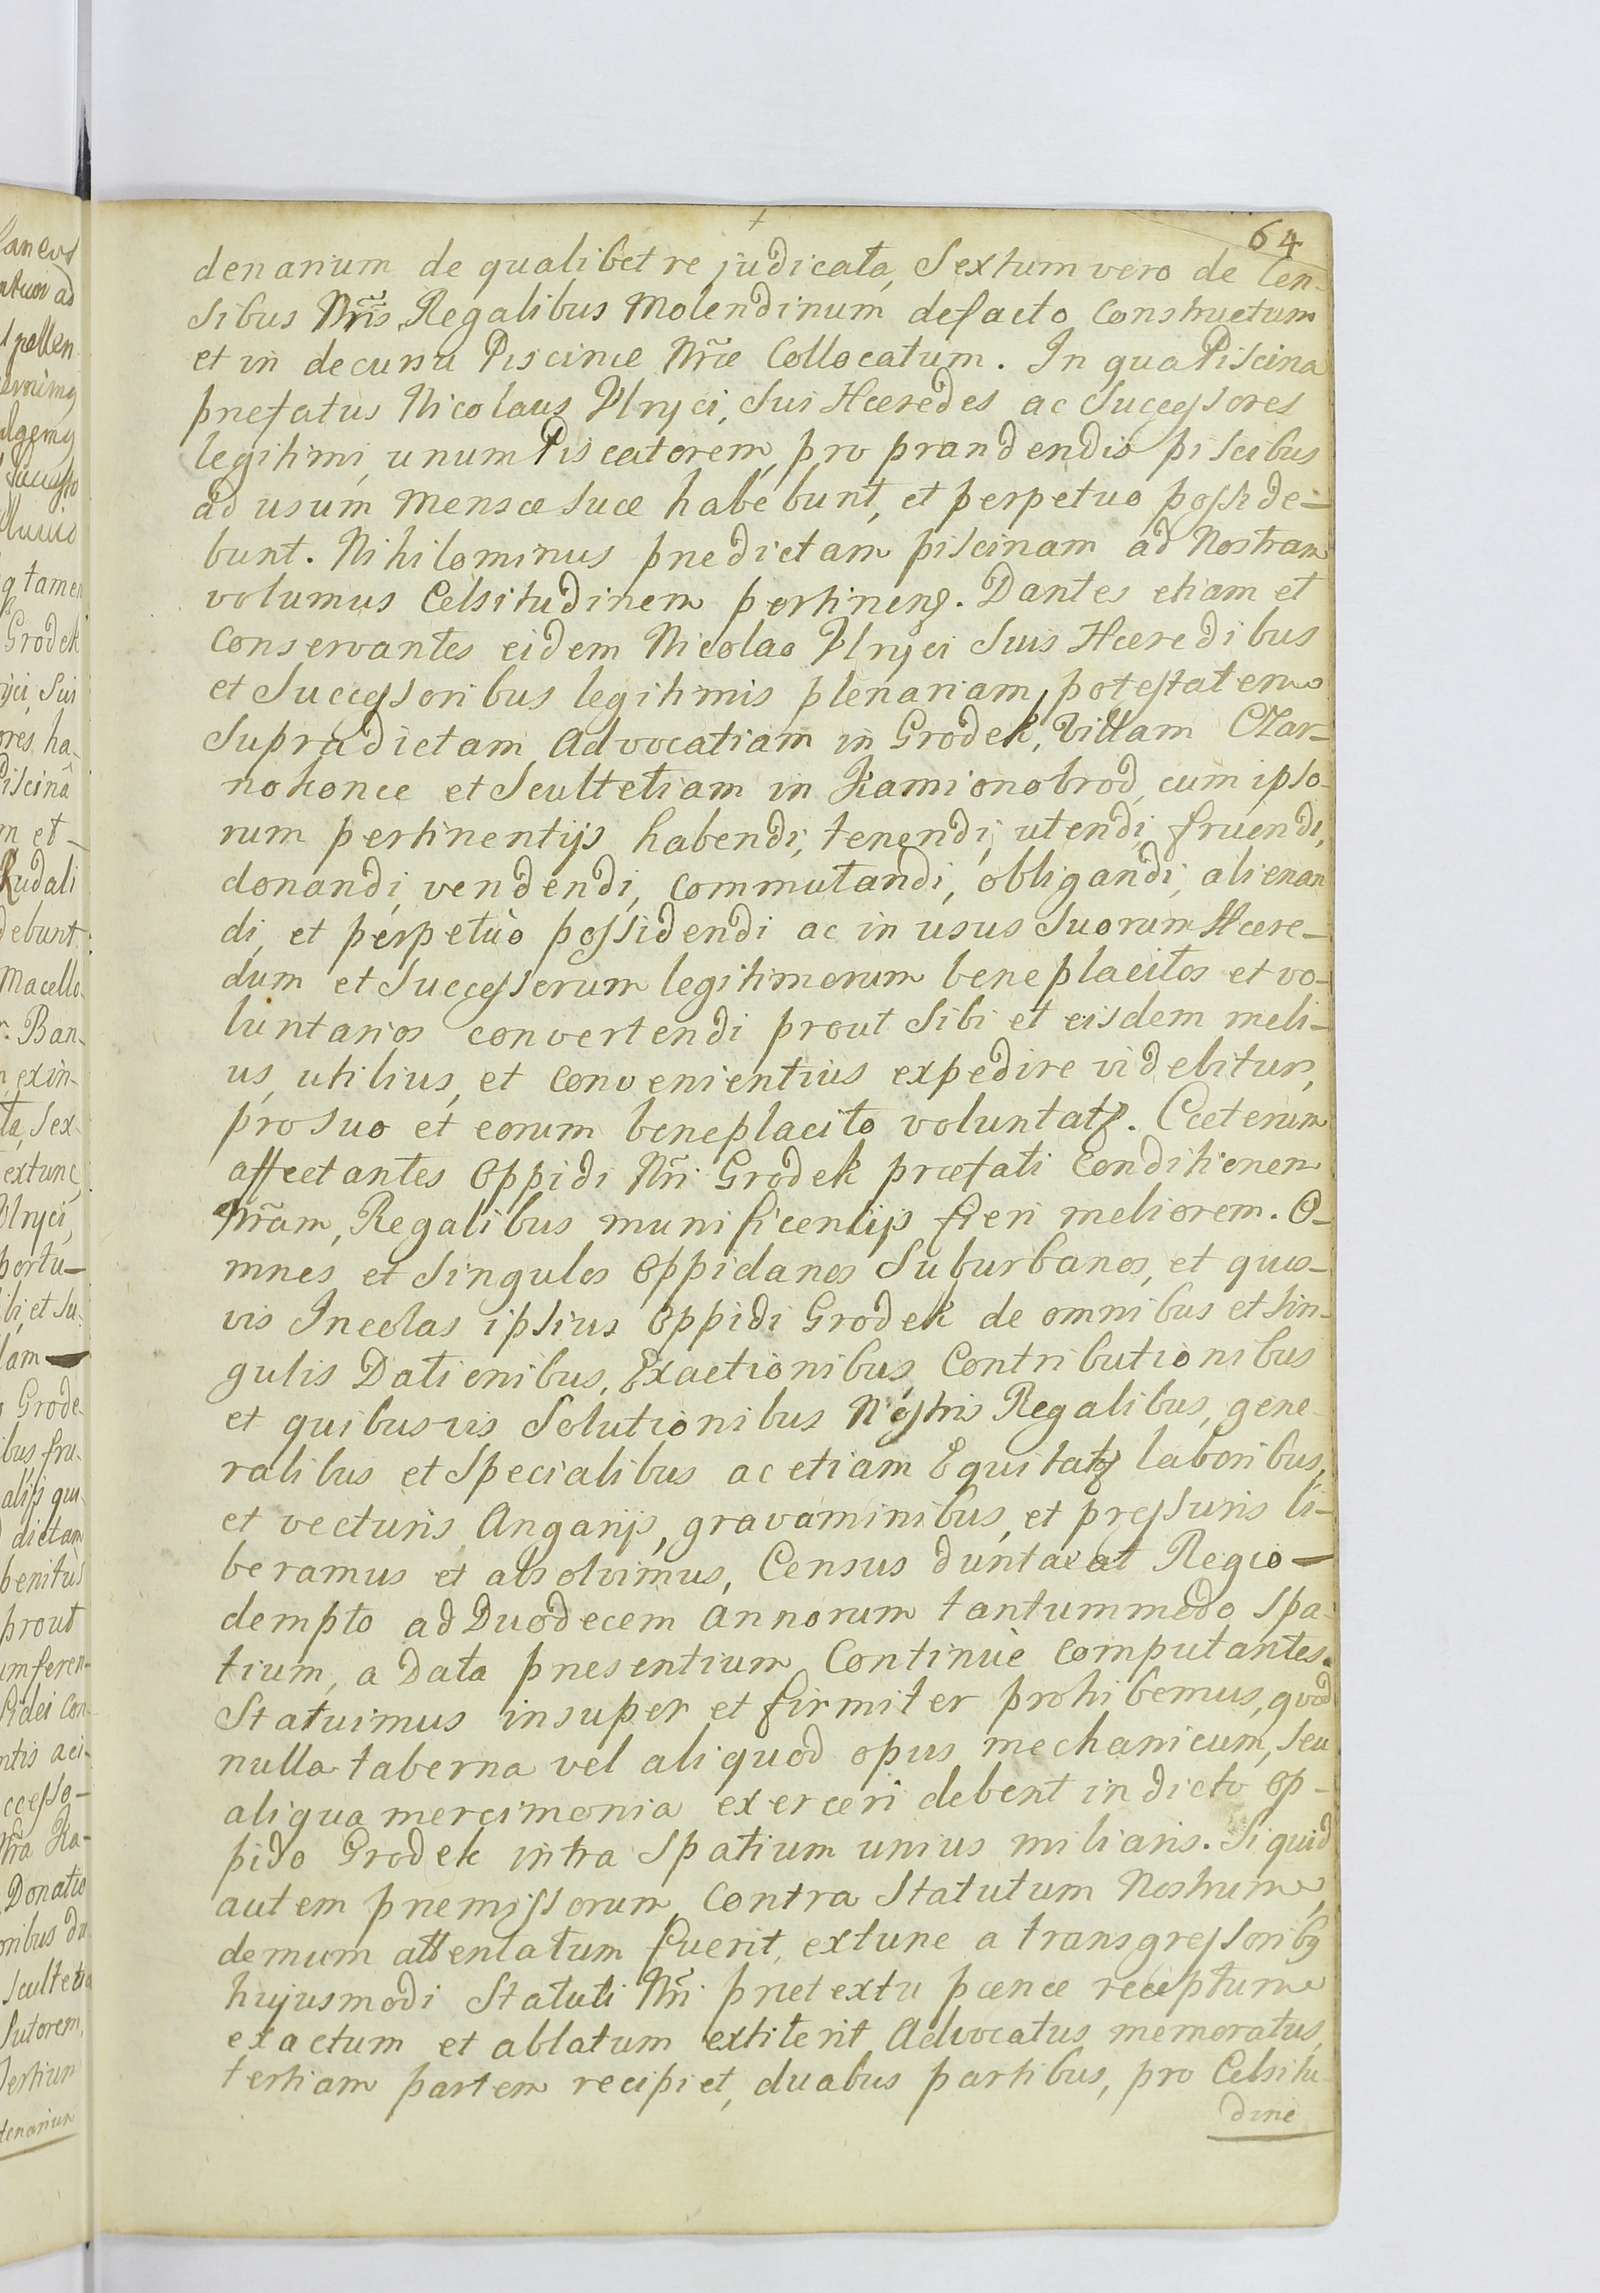 64
denarium de qualibet re judicata, Sextum vero de Cen-
sibus Nr̃is Regalibus Molendinum defacto Constructum
et in decursu Piscinæ Nr̃æ Collocatum. In qua Piscina
prefatus Nicolaus Ulryci, Sui Hæredes ac Successores
legitimi unum Piscatorem, pro prandendis piscibus
ad usum Mensæ suæ habebunt, et perpetuo posside-
bunt. Nihilominus predictam piscinam ad Nostram
volumus Celsitudinem pertinens. Dantes etiam et
Conservantes eidem Nicolao Ulryci Suis Hæredibus
et Successoribus legitimis plenariam potestatem
Supradictam Advocatiam in Grodek, Villam Czar-
nokonce et Scultetiam in Kamionobrod, cum ipso-
rum pertinentijs habendi, tenendi, utendi, fruendi,
donandi, vendendi, commutandi, obligandi, alienan
di, et perpetuò possidendi ac in usus Suorum Hære-
dum et Successorum legitimorum beneplacitos et vo-
luntarios convertendi prout Sibi et eisdem meli-
us, utilius, et convenientius expedire videbitur,
pro suo et eorum beneplacito voluntatis. Cæterum
affectantes Oppidi Nr̃i Grodek præfati Conditionem
Nr̃am, Regalibus munificentijs fieri meliorem. O-
mnes et Singulos Oppidanos Suburbanos, et quos-
vis Incolas ipsius Oppidi Grodek de omnibus et sin-
gulis Dationibus, Exactionibus Contributionibus
et quibusvis Solutionibus Nostris Regalibus, gene-
ralibus et Specialibus ac etiam Equitatis laboribus,
et vecturis, Angarijs, gravaminibus, et pressuris li-
beramus et absolvimus, Census duntaxat Regio-
dempto ad Duodecem annorum tantummodo Spa-
tium, a Data presentium Continuè Computantes.
Statuimus insuper et firmiter prohibemus, quod
nulla taberna vel aliquod opus mechanicum, seu
aliqua mercimonia exerceri debent in dicto Op-
pido Grodek intra Spatium unius miliaris. Si quid
autem premissorum Contra Statutum Nostrum,
demum attentatum fuerit, extunc a transgressoribq
hujusmodi Statuti Nr̃i pretextu pœnæ receptum
exactum et ablatum extiterit Advocatus memoratus,
tertiam partem recipiet, duabus partibus, pro Celsitu-
dine